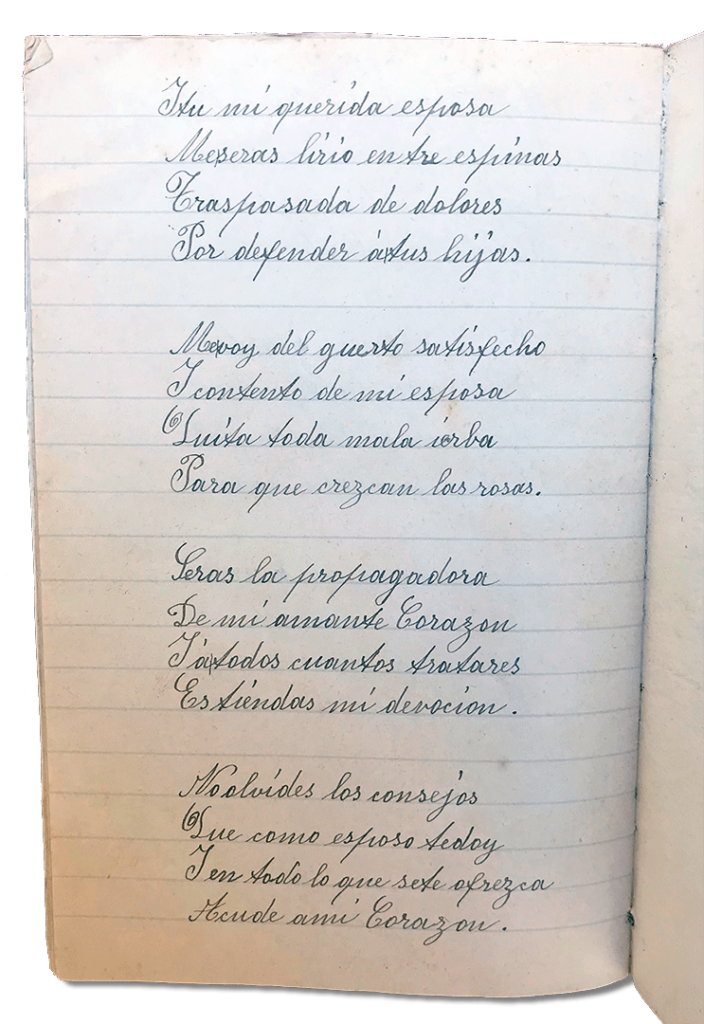 Itu mi querida esposa
Meseras lirio entre espinas
Traspasada de dolores
Por defender á tus hijas.
Mevoy del guerto satisfecho
I contento de mi esposa
Quita toda mala ierba
Para que crezcan las rosas.
Seras la propagadora
De mi amante Corazon
I á todos cuantos tratares
Estiendas mi devocion.
No olvides los consejos
Que como esposo tedoy
I en todo lo que sete ofrezca
Acude ami Corazon.